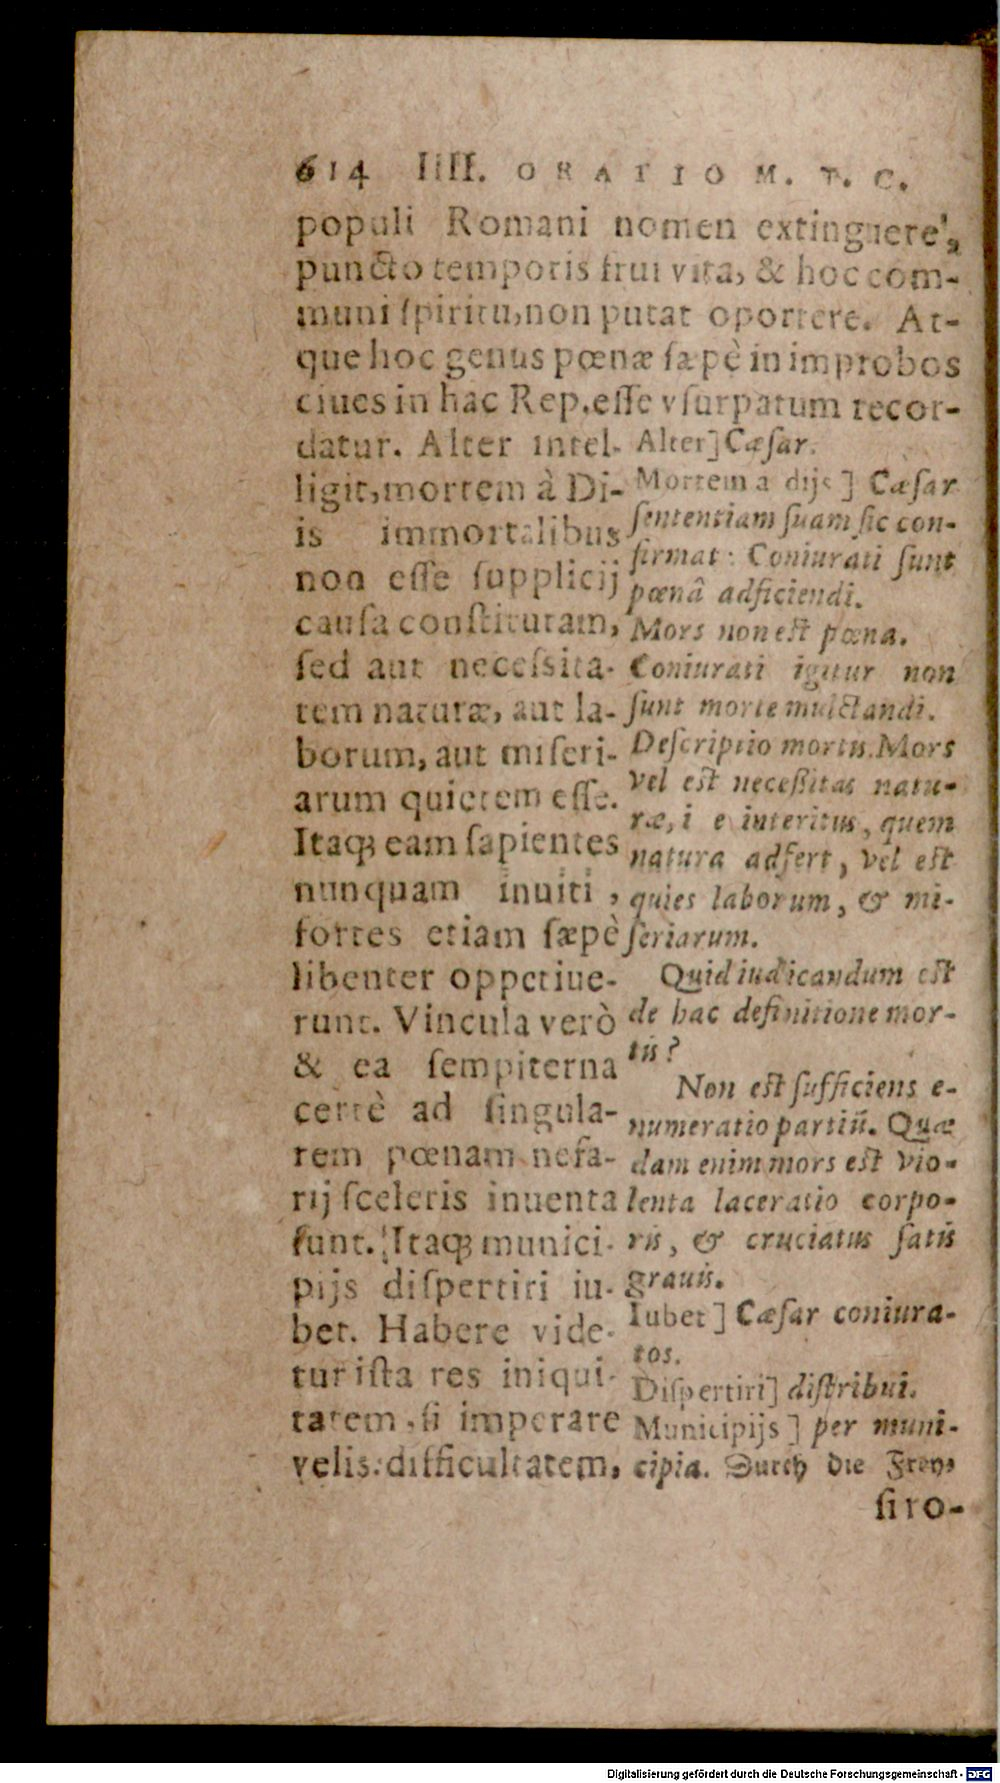 614 IIII. ORATIO M. T. C.
populi Romani nomen extinguere,
puncto temporis frui vita, & hoc com-
muni ſpiritu, non putat oportere. At-
que hoc genus pœnæ ſæpè in improbos
ciues in hac Rep. eſſe vſurpatum recor-
datur. Alter intel-
ligit, mortem à Di-
is immortalibus
non eſſe ſupplicij
cauſa conſtitutam,
ſed aut neceſsita-
tem naturæ, aut la-
borum, aut miſeri-
arum quietem eſſe.
Itaq; eam ſapientes
nunquam inuiti,
fortes etiam ſæpè
libenter oppetiue-
runt. Vincula verò
& ea ſempiterna
certè ad ſingula-
rem pœnam nefa-
rij ſceleris inuenta
ſunt. Itaq; munici-
pijs diſpertiri iu-
bet. Habere vide-
tur iſta res iniqui-
tatem, ſi imperare
velis: difficultatem,
Alter] Cæſar.
Mortem a dijs] Cæſar
ſententiam ſuam ſic con-
firmat: Coniurati ſunt
pœnâ adficiendi.
Mors non eſt pœna.
Coniurati igitur non
ſunt morte mulctandi.
Deſcriptio mortis. Mors
vel eſt neceßitas natu-
ræ, i e interitus, quem
natura adfert, vel eſt
quies laborum, & mi-
ſeriarum.
Quid iudicandum eſt
de hac definitione mor-
tis?
Non eſt ſufficiens e-
numeratio partiū. Quæ
dam enim mors eſt vio-
lenta laceratio corpo-
ris, & cruciatus ſatis
grauis.
Iubet] Cæſar coniura-
tos.
Diſpertiri] diſtribui.
Municipijs] per muni-
cipia. Durch die Frey-
ſi ro-
Digitalisierung gefördert durch die Deutsche Forschungsgemeinschaft - DFG